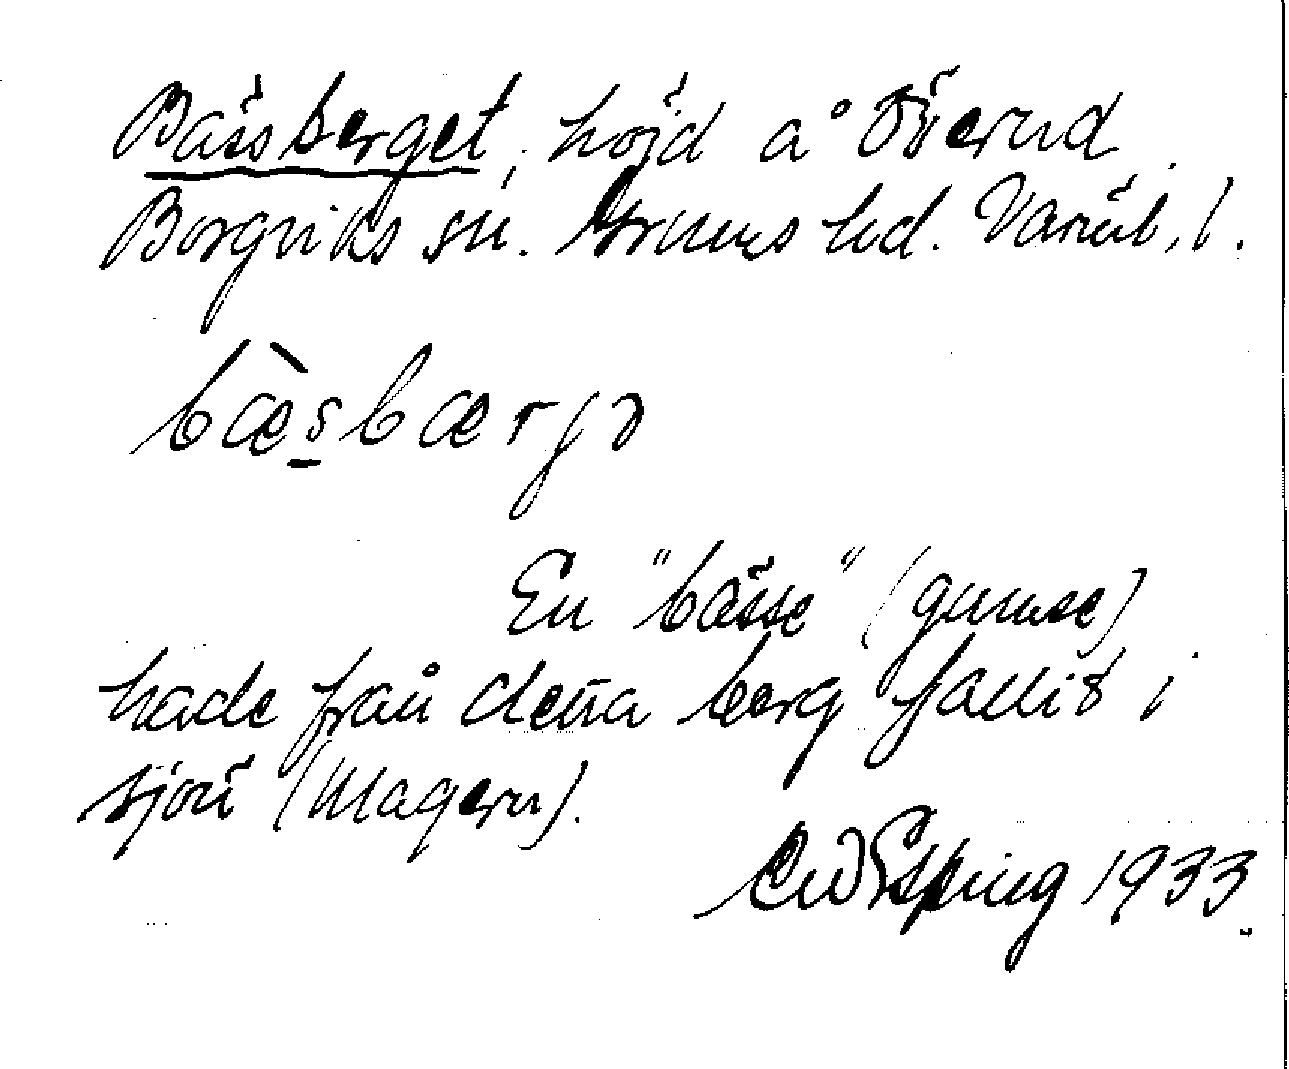 Bässberget, höjd å Överud
Borgviks sn. Grums hd. Värml. l.
bæ̀sbærjə
En "bässe" (gumse)
hade från detta berg fallit i
sjön (Magern).
Espling 1933.